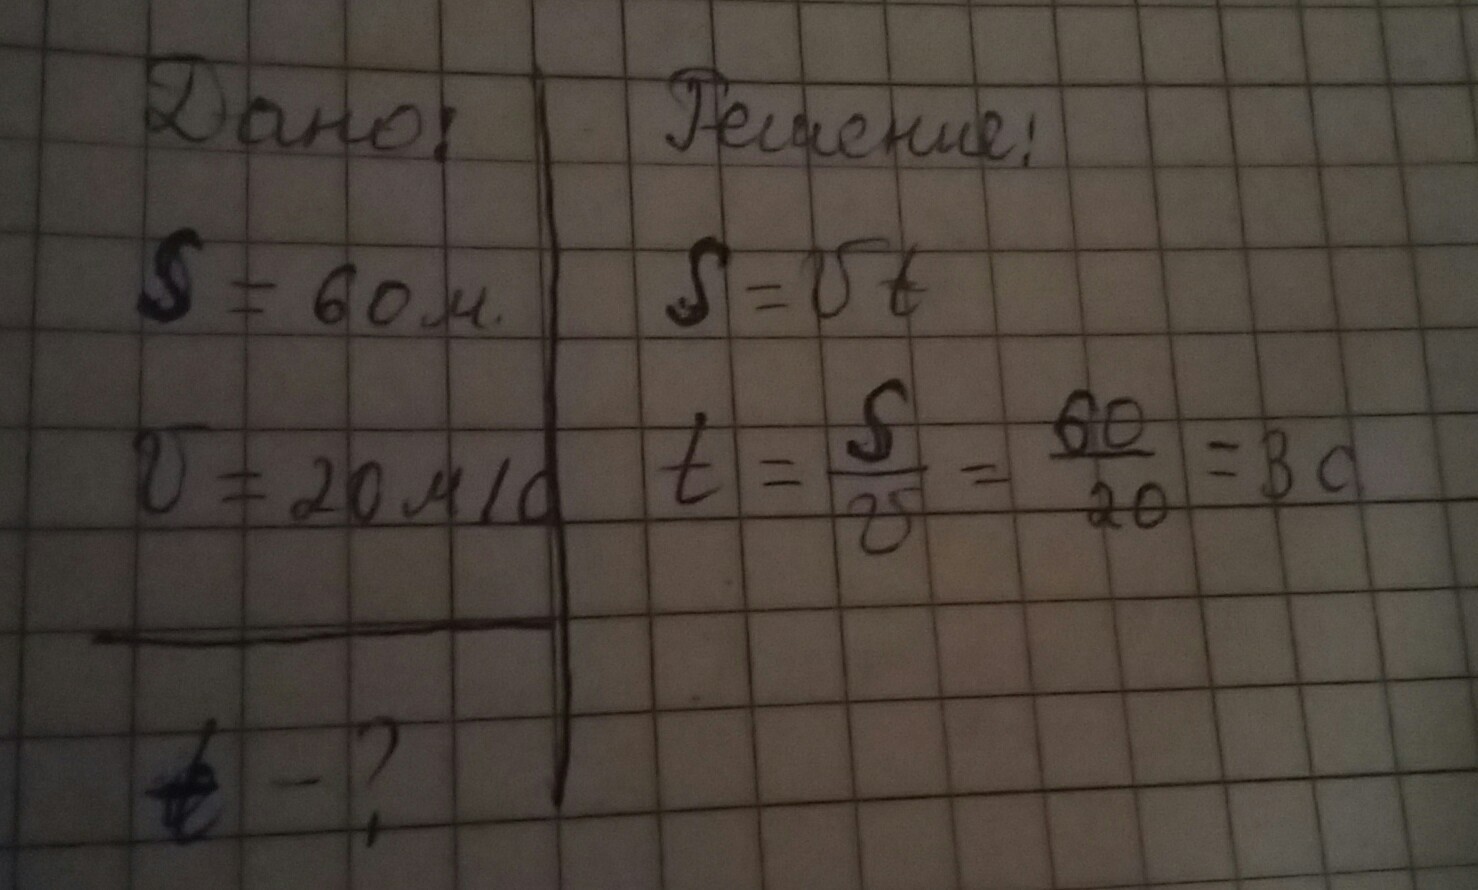 Дано:
S = 60 м.
v = 20 м/с
t - ?
Решение:
S = v t
t = S/v = 60/20 = 3 с